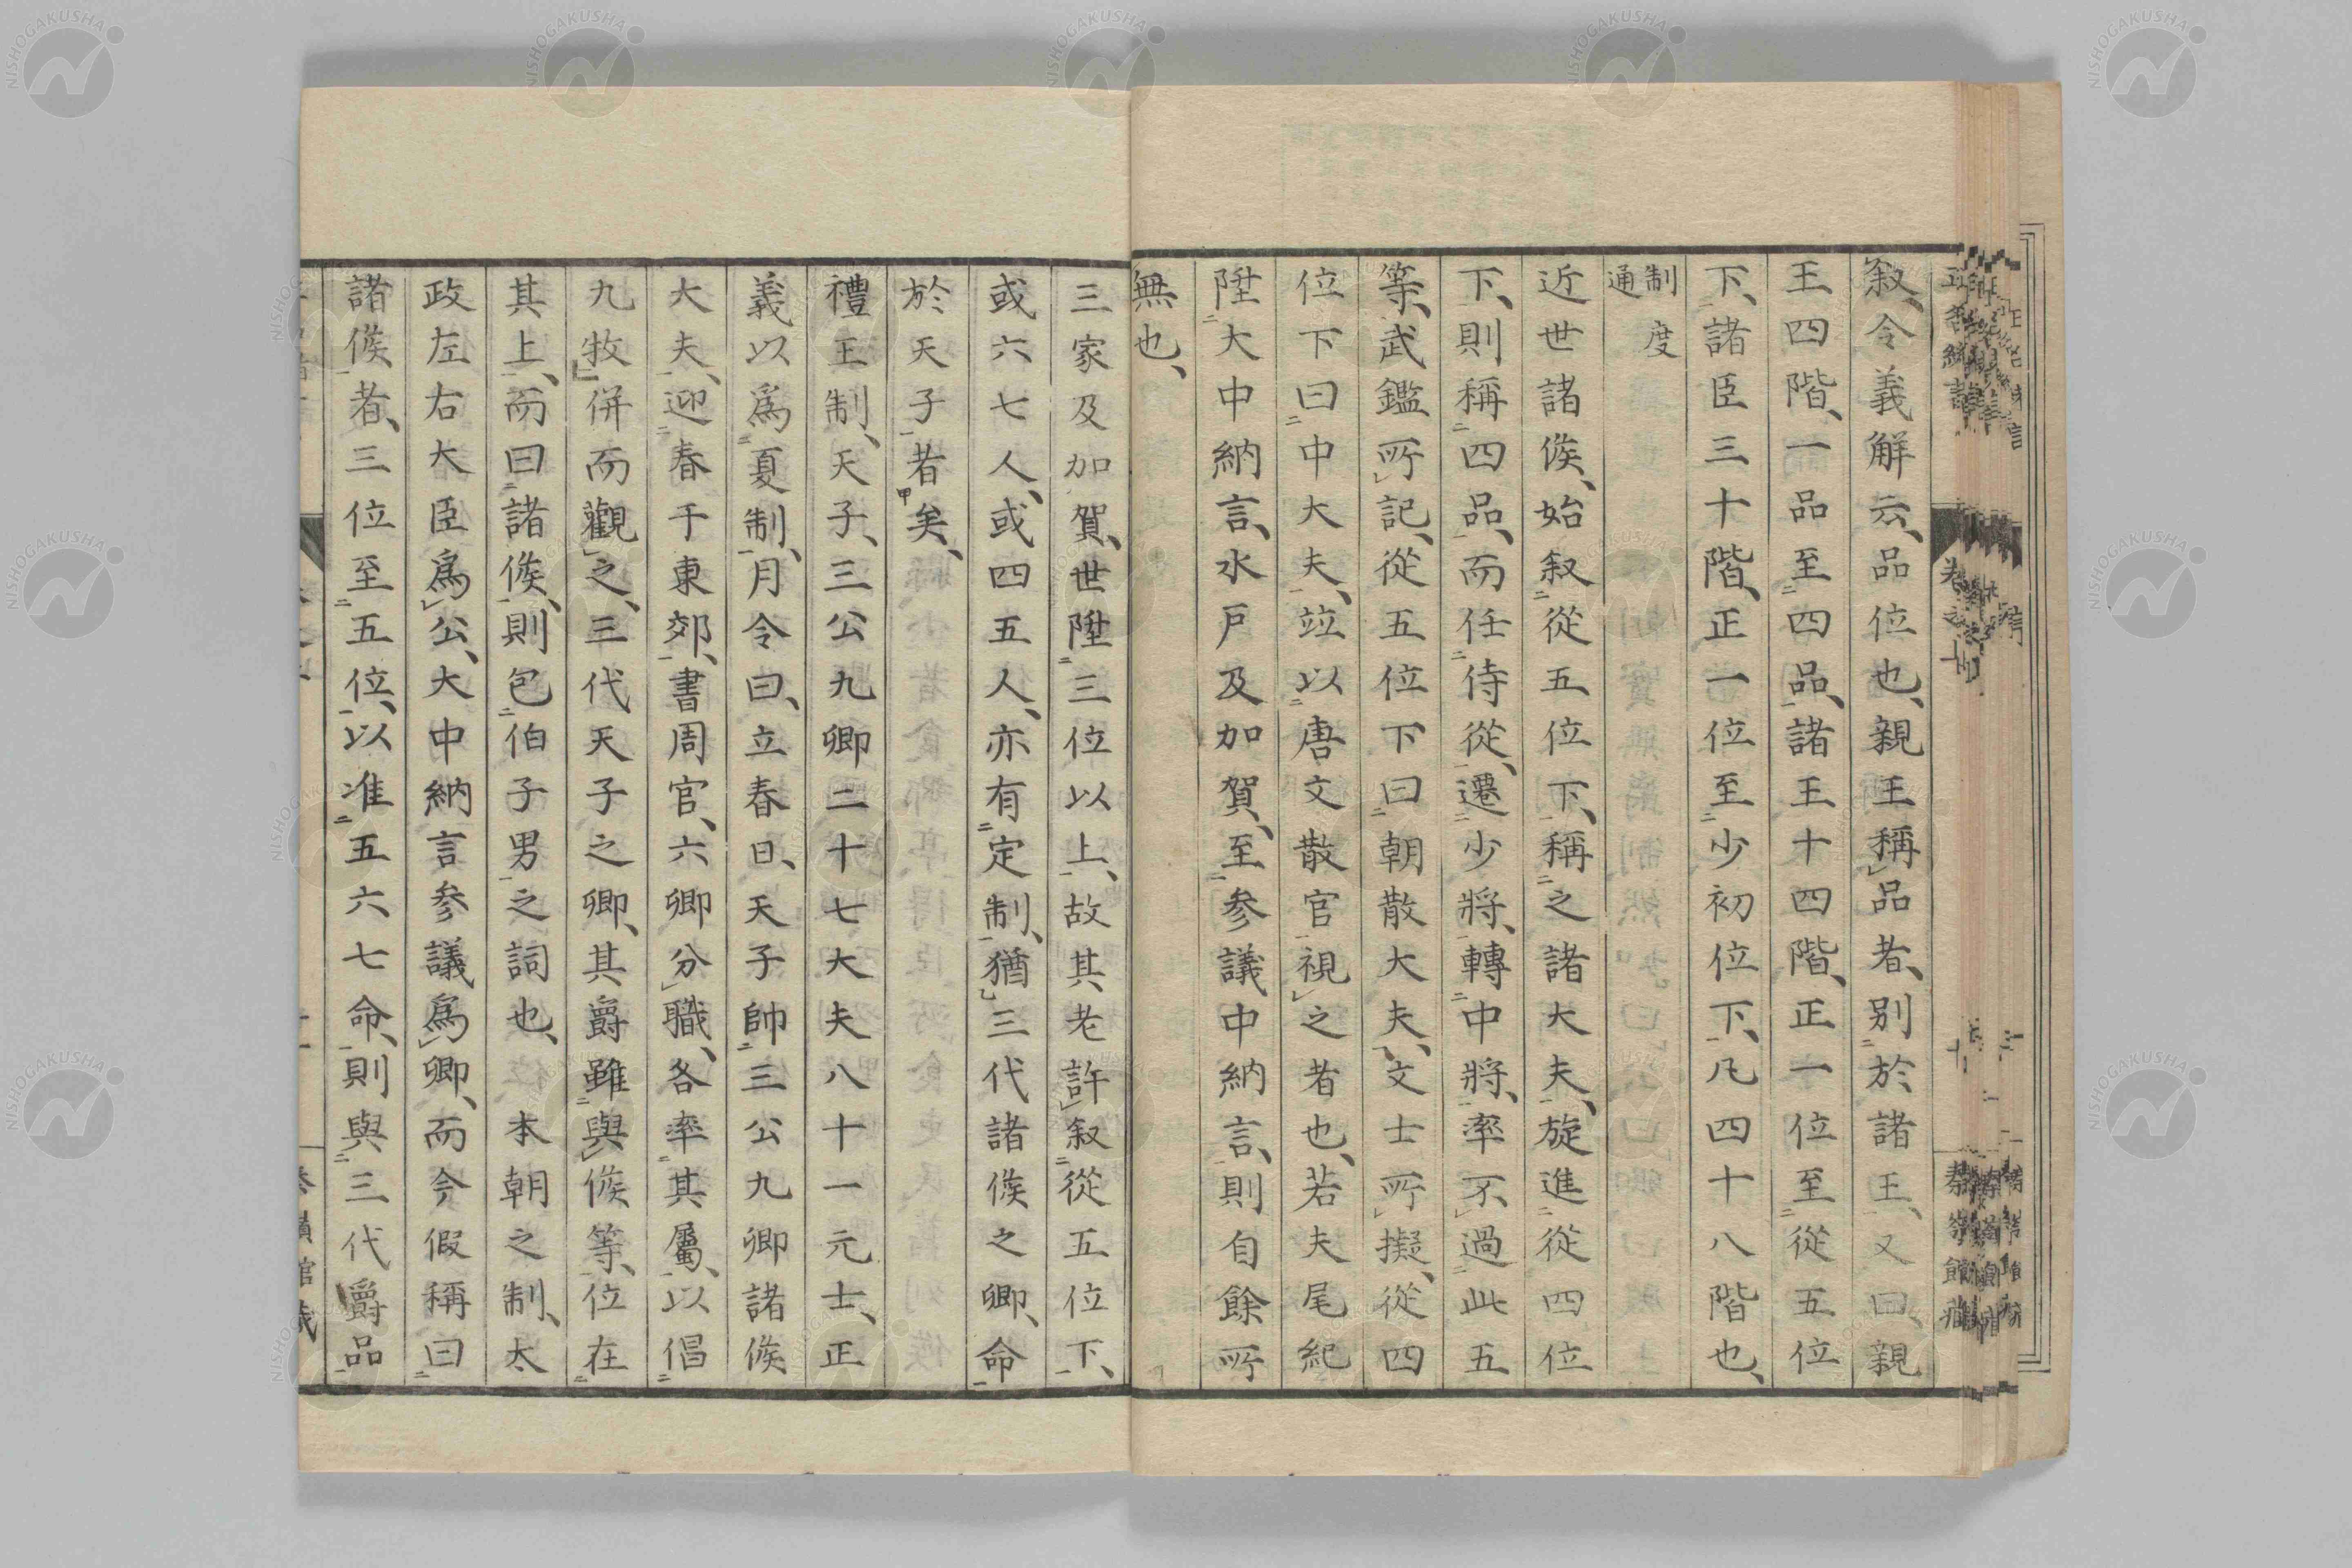 叙、令義解云、品位也、親王稱品者、別於諸王、又曰、親
王四階、一品至四品、諸王十四階、正一位至從五位
下、諸臣三十階、正一位至少初位下、凡四十八階也、
制度
通
近世諸侯、始叙從五位下、稱之諸大夫、旋進從四位
下、則稱四品、而任侍從、遷少將、轉中將、率不過此五
等、武鑑所記、從五位下曰朝散大夫、文士所擬、從四
位下曰中大夫、竝以唐文散官視之者也、若夫尾紀
陞大中納言、水戸及加賀、至參議中納言、則自餘所
無也、
三家及加賀、世陞三位以上、故其老許叙從五位下、
或六七人、或四五人、亦有定制、猶三代諸侯之卿、命
於天子者矣、
禮王制、天子、三公九卿二十七大夫八十一元士、正
義以爲夏制、月令曰、立春日、天子帥三公九卿諸侯
大夫、迎春于東郊、書周官、六卿分職、各率其屬、以倡
九牧、併而觀之、三代天子之卿、其爵雖與侯等、位在
其上、而曰諸侯、則包伯子男之詞也、本朝之制、太
政左右大臣爲公、大中納言參議爲卿、而今假稱曰
諸侯者、三位至五位、以准五六七命、則與三代爵品
NISHOGAKUSHA